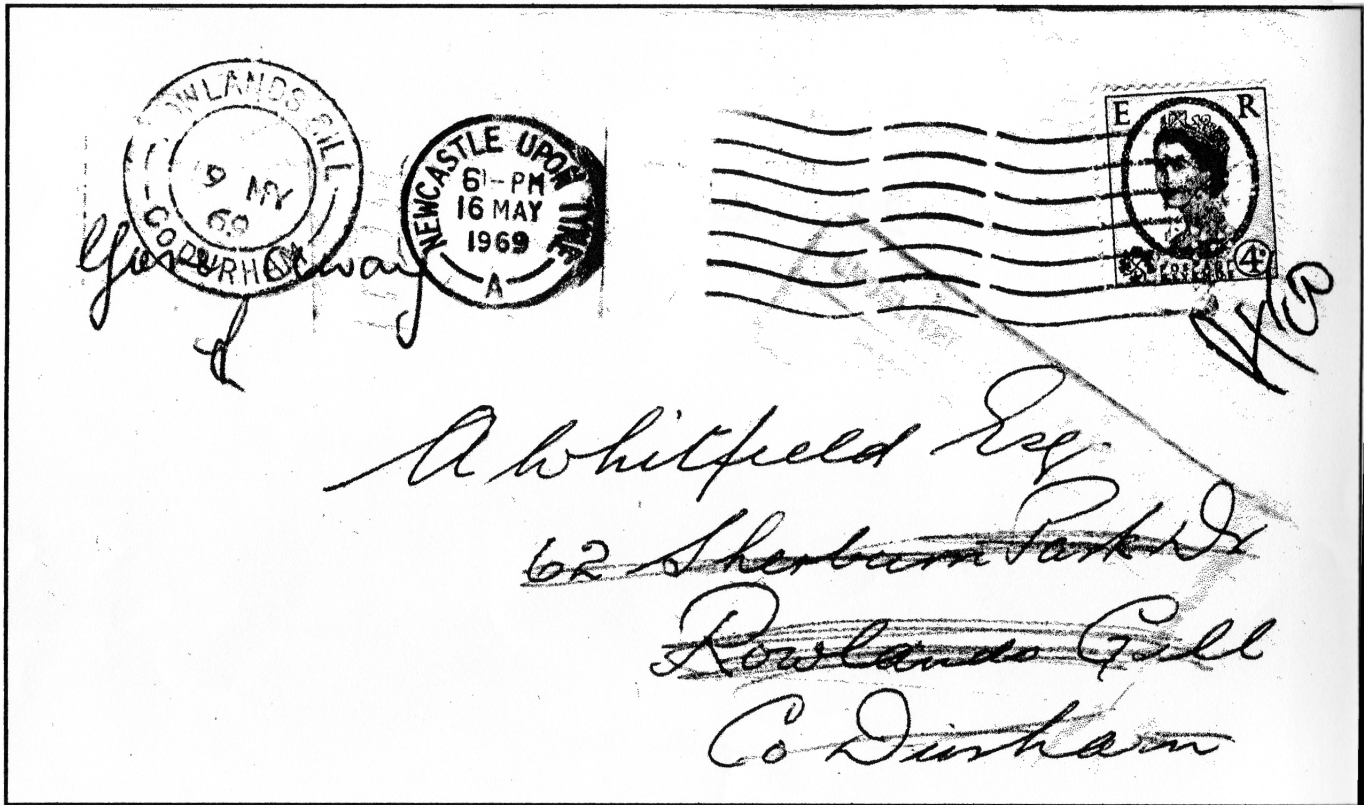 ROWLANDS GILL
9 MY
69
CO DURHAM
NEWCASTLE UPON TYNE
6-PM
16 MAY
1969
A
E R
POSTAGE
4D
Gone away
A Whitfield Esq.
62 Sherburn Park Dr
Rowlands Gill
Co Durham